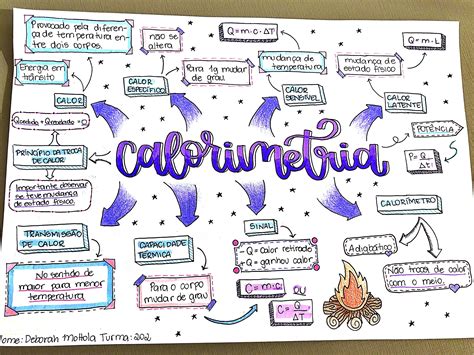 Provocado pela diferen-
ça de temperatura en-
tre dois corpos.
Energia em
trânsito
CALOR
Qcedido + Qrecebido = 0
PRINCÍPIO DA TROCA
DE CALOR
Importante observar
se teve mudança
de estado físico.
TRANSMISSÃO
DE CALOR
No sentido de
maior para menor
temperatura
não se
altera
Para 1g mudar
de grau
CALOR
ESPECÍFICO
Q = m·c·ΔT
mudança de
temperatura
CALOR
SENSÍVEL
Q = m·L
mudança de
estado físico
CALOR
LATENTE
calorimetria
POTÊNCIA
P = Q
Δt
CALORÍMETRO
Adiabático
Não troca de calor
com o meio.
CAPACIDADE
TÉRMICA
Para o corpo
mudar de grau
SINAL
- Q = calor retirado
+ Q = ganhou calor
C = m·c
OU
C = Q
ΔT
Nome: Deborah Mottola Turma: 202